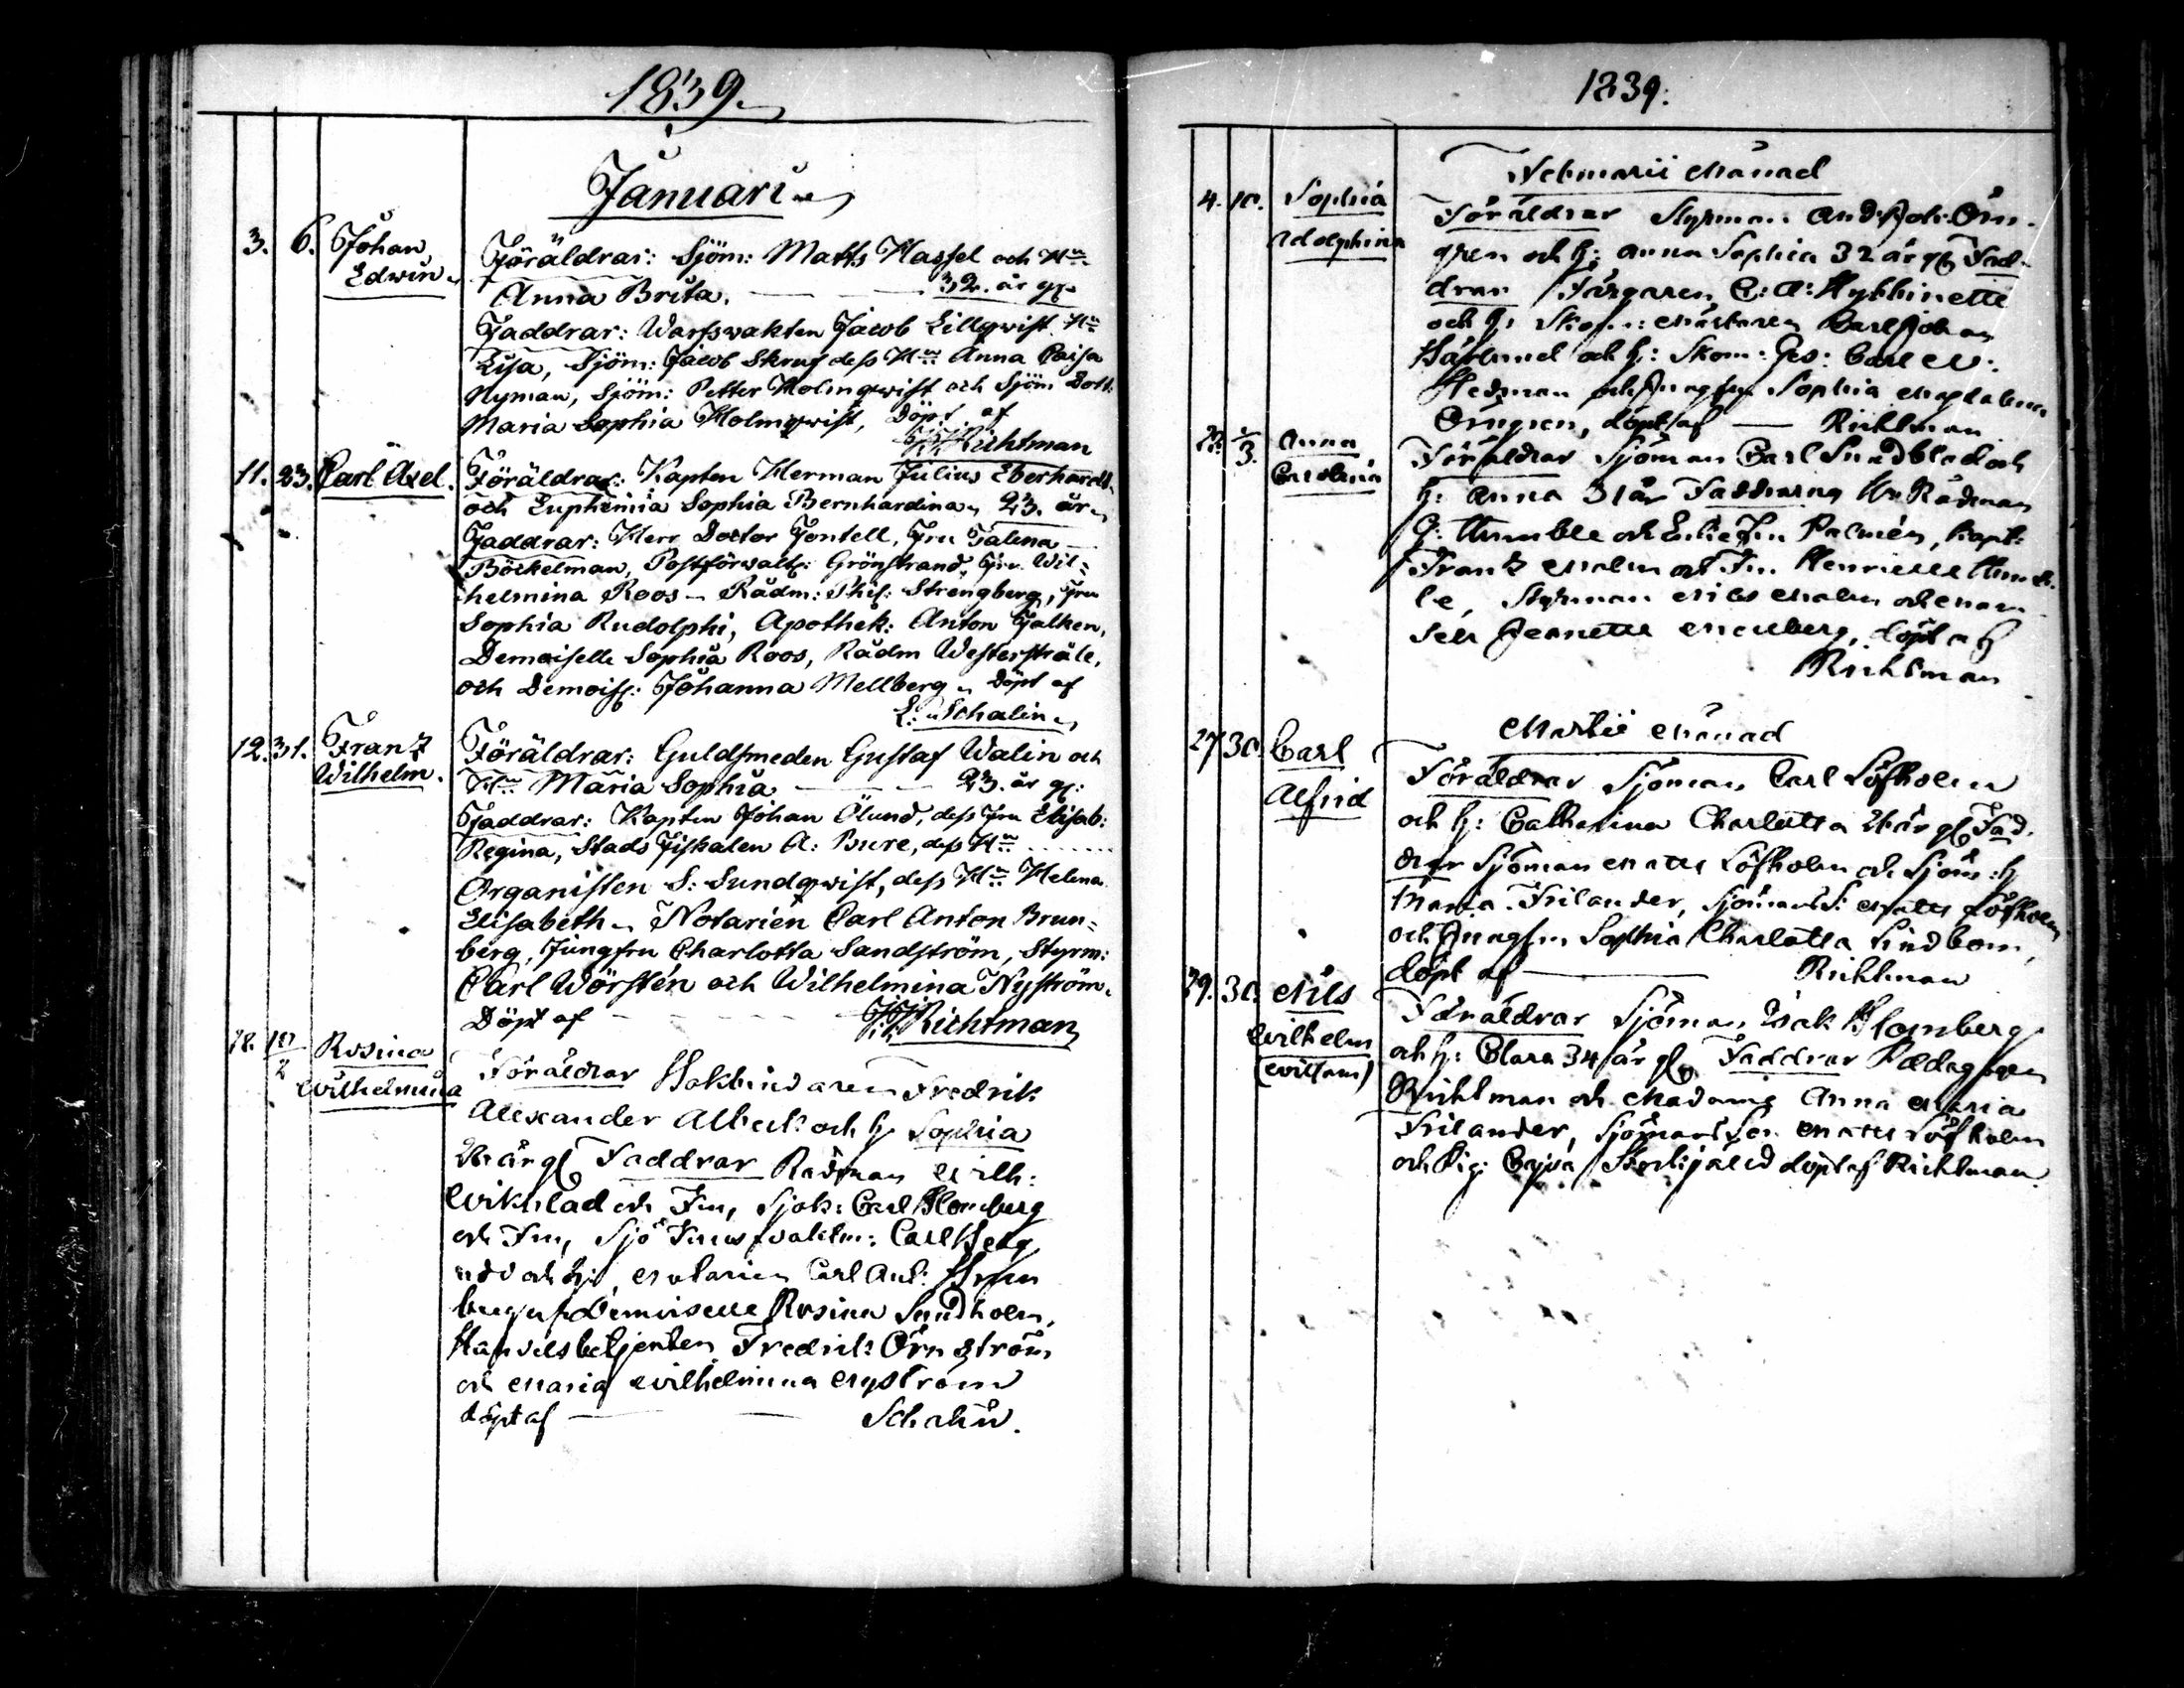 1839.
Januari
3. 6. Johan Edwin
Föräldrar: Sjöm: Matts Hassel och H:u
Anna Brita. — — 32. år gl.
Faddrar: Warfsvakten Jacob Lillqvist H:u
Lisa, Sjöm: Jacob Skruf dess H:u Anna Caisa
Nyman, Sjöm: Petter Holmqvist och Sjöm Dott:
Maria Sophia Holmqvist, Döpt af
Richtman
11. 23. Carl Axel.
Föräldrar: Kapten Herman Julius Eberhardt
och Euphemia Sophia Bernhardina 23. år
Faddrar: Herr Doctor Fontell, Fru Talena
Böckelman, Postförvalt: Grönstrand, Fru Wil-
helmina Roos — Rådm: Phil: Strengberg, Fru
Sophia Rudolphi, Apothek: Anton Falken,
Demoiselle Sophia Roos, Rådm Westerstråle,
och Demoiss: Johanna Mellberg Döpt af
E: Schalin
12. 31. Franz Wilhelm.
Föräldrar: Guldsmeden Gustaf Walin och
H:u Maria Sophia — 23. år gl:
Faddrar: Kapten Johan Ölund, dess Fru Elisab:
Regina, Stads Fiskalen A: Bure, dess H:u . . . . . .
Organisten S: Sundqvist, dess H:u Helena
Elisabeth Notarien Carl Anton Brun-
berg, Jungfru Charlotta Sandström, Styrm:
Carl Wörstén och Wilhelmina Nyström.
Döpt af — — — Richtman
18. 10/2 Rosina Wilhelmina
Föräldrar Bokbindaren Fredrik
Alexander Albeck och h. Sophia
26 år gl Faddrar Rådman Wilh:
Wikblad och Fru, Sjök: Carl Blomberg
och Fru, Sjö Carl Berg
och h:, Notarien Carl Ant: Brun
berg Demoiselle Rosina Sundholm,
Handelsbetjenten Fredrik Örnström
och Maria Wilhelmina Nyström
döpt af — — Schalin.
1839.
Februarii Månad
4. 10. Sophia Adolphina
Föräldrar Styrman And: Joh: Örn-
gren och h: Anna Sophia 32 år gl Fad-
drar Färgaren C: A: Hybbinette
och h: Skom: Mästaren Carl Johan
Härlund och h: Skom: Ges: Carl M:
Hedman och Jungfru Sophia Magdalena
Örngren, döpt af — Richtman
1/3. Anna Carolina
Föräldrar Sjöman Carl Sundblad och
h: Anna 31 år Faddrarna Hr. Rådman
G: Humble och Fru Palmén, Kapt:
Frantz Malm och Fru Henriette Humb-
le, Styrman Nils Malm och Mam-
sell Jeanette Meuberg, döpt af
Richtman
Martii Månad
27 30. Carl Alfrid
Föräldrar Sjöman Carl Löfholm
och h: Catharina Charlotta 26 år gl Fad-
drar Sjöman Matts Löfholm och Sjöm: h
Maria Frilander, Sjömans S: Matts Löfholm
och Jungfru Sophia Charlotta Lindbom,
döpt af — Richtman
29. 30. Nils Wilhelm (William)
Föräldrar Sjöman Isak Blomberg
och h: Clara 34 år gl Faddrar Pædagogen
Richtman och Madame Anna Maria
Frilander, Sjömans Son Matts Löfholm
och Pig: Cajsa döpt af Richtman.